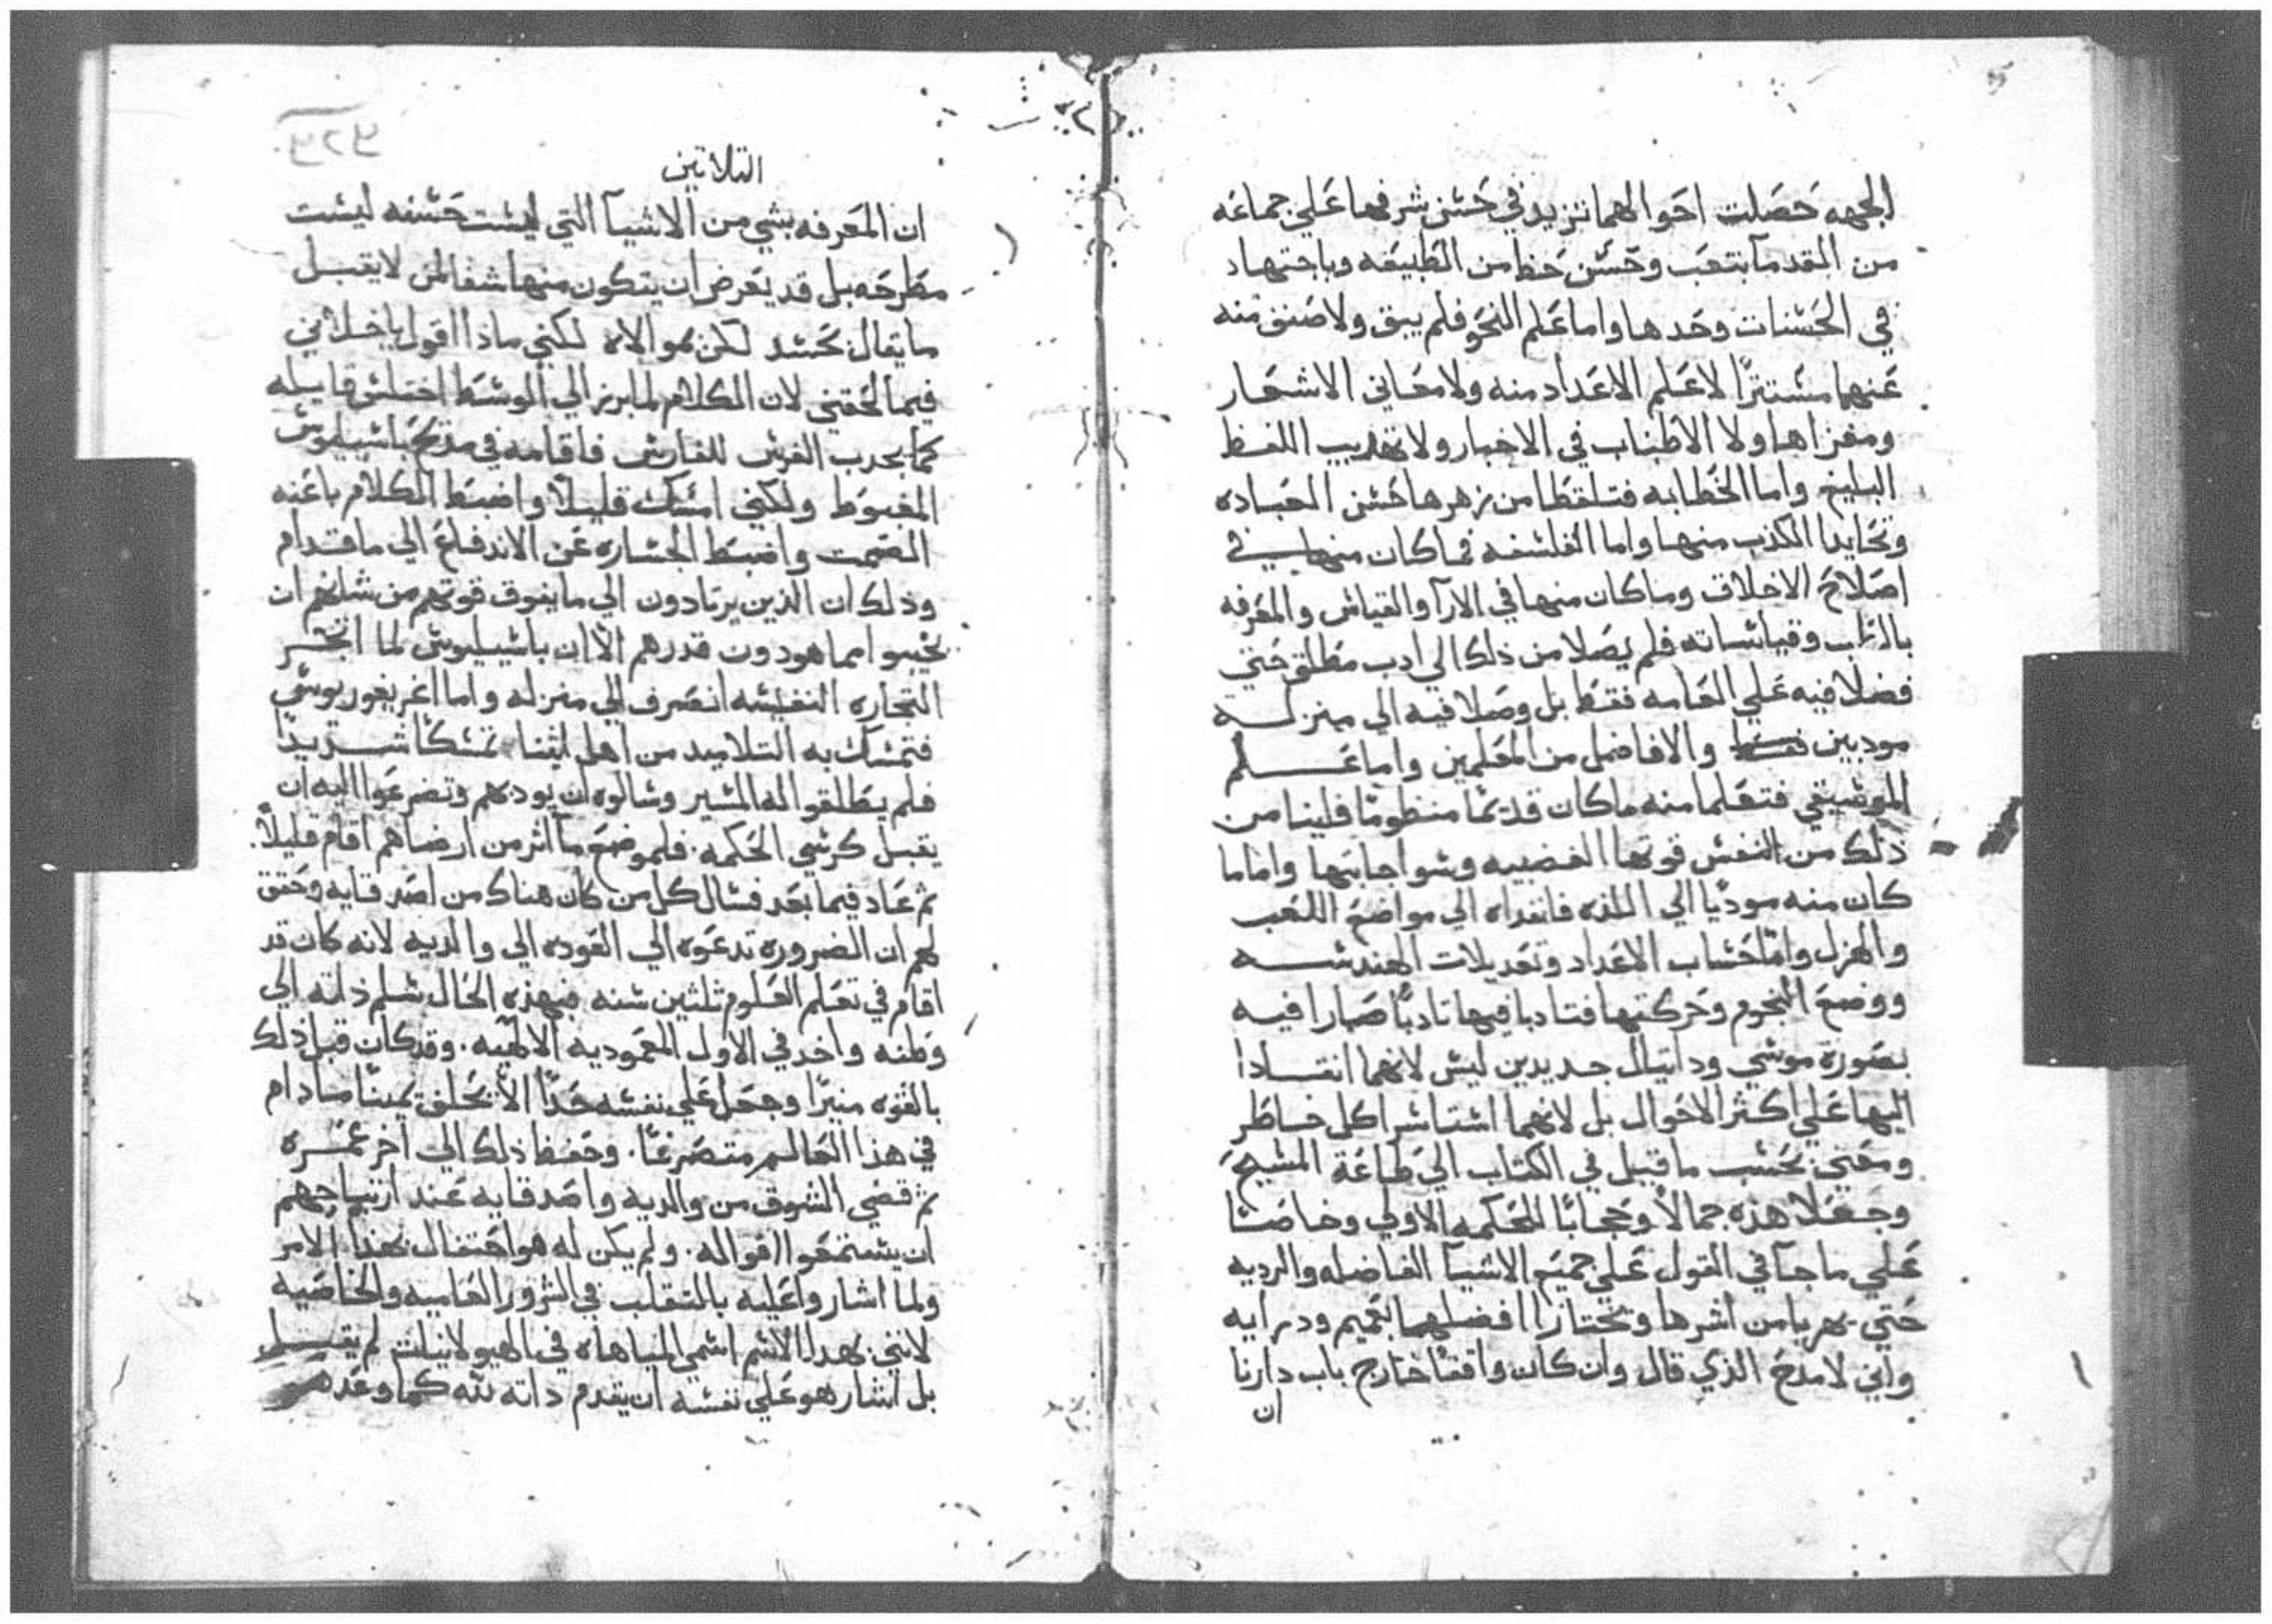 الجهه حصلت احوالهما تزيد في حسن شرفهما علي جماعه
من القدمآ بتعب وحسن حظ من الطبيعه وباجتهاد
في الحسنات وحدها واما علم النحو فلم يبق ولا صنف منه
عنهما مستترًا لا علم الاعداد منه ولا معاني الاشعار
ومغزاها ولا الاطناب في الاخبار ولا تهذيب اللفظ
البليغ واما الخطابه فتلقطا من زهرها حسن العباده
وتحايدا الكذب منها واما الفلسفه فما كان منها في
اصلاح الاخلاق وما كان منها في الارآ والقياس والمعرفه
وقياساته فلم يصلا من ذلك الي ادب مطلق حتي
فضلا فيه علي العامه فقط بل وصلا فيه الي منزلـه
مودبين والافاضل من المعلمين واما عـلم
الموسيقي فتعلما منه ما كان قديمًا منظومًا فلينا من
ذلك من النفس قوتها الغضبيه وشواجانها واما ما
كان منه موديًا الي اللذه فانفداه الي مواضع اللعب
والهزل واما حساب الاعداد وتعديلات الهندسـه
ووضع النجوم وحركتها فتادبا فيها تادبًا صارا فيه
بصورة موسي ودانيال جديدين ليس لانهما انقـادا
اليها علي اكثر الاحوال بل لانهما استاسرا كل خـاطر
ومعني بحسب ما قيل في الكتاب الي طاعة المسيح
وجعلا هذه جمالاً وحجابًا للحكمه الاولي وخاصتًا
علي ما جآ في القول علي جميع الاشيآ الفاضله والرديه
حتي يهربا من اشرها ويختارا افضلهما بتميم ودرايه
واني لامدح الذي قال وان كان واقفًا خارج باب دارنا
ان
التلاتين
ان المعرفه بشي من الاشيآ التي ليست حسنه ليست
مطرحه بل قد يعرض ان يتكون منها شفا لمن لا يقبـل
ما يقال بحسد لكن بموالاه لكني ماذا اقول يا خلاني
فيما لحقني لان الكلام لما برز الي الوسط اختلس قايله
كما يجدب الفرس للفارس فاقامه في مديح باسيليوس
المغبوط ولكني امسك قليلاً واضبط الكلام باعنه
الصمت واضبط الجساره عن الاندفاع الي ما قدام
وذلك ان الذين يرتادون الي ما يفوق قوتهم من شانهم ان
يخيبوا مما هو دون قدرهم الا ان باسيليوس لما اتجـر
التجاره النفيسه انصرف الي منزله واما اغريغوريوس
فتمسك به التلاميد من اهل اثنا تمسكًا شـديدًا
فلم يطلقوا له المسير وسالوه ان يودبهم وتضرعوا اليه ان
يقبل كرسي الحكمه. فلموضع مآ اثر من ارضاهم اقام قليلاً.
ثم عاد فيما بعد فسال كل من كان هناك من اصدقايه وحقق
لهم ان الضروره تدعوه الي العوده الي والديه لانه كان قد
اقام في تعلم العلوم ثلثين سنه فبهذه الحال سلم ذاته الي
وطنه واخد في الاول المعموديه الالهيه. وقد كان قبل ذلك
بالقوه منيرًا وجعل علي نفسه حدًا الا يحلف يمينًا مـادام
في هذا العالم متصرعًا. وحفظ ذلك الي اخر عمـره
ثم قضي الشوق من والديه واصدقايه عند ارتياحهم
ان يستمعوا اقواله. ولم يكن له هو احتفال بهذا الامر
ولما اشاروا عليه بالتقلب في الشرور العاميه والخاصيه
لانني بهدا الاسم اسمي المباهاه في الهيولانيات لم يقبـل
بل اشار هو علي نفسه ان يقدم داته لله كما وعدهم